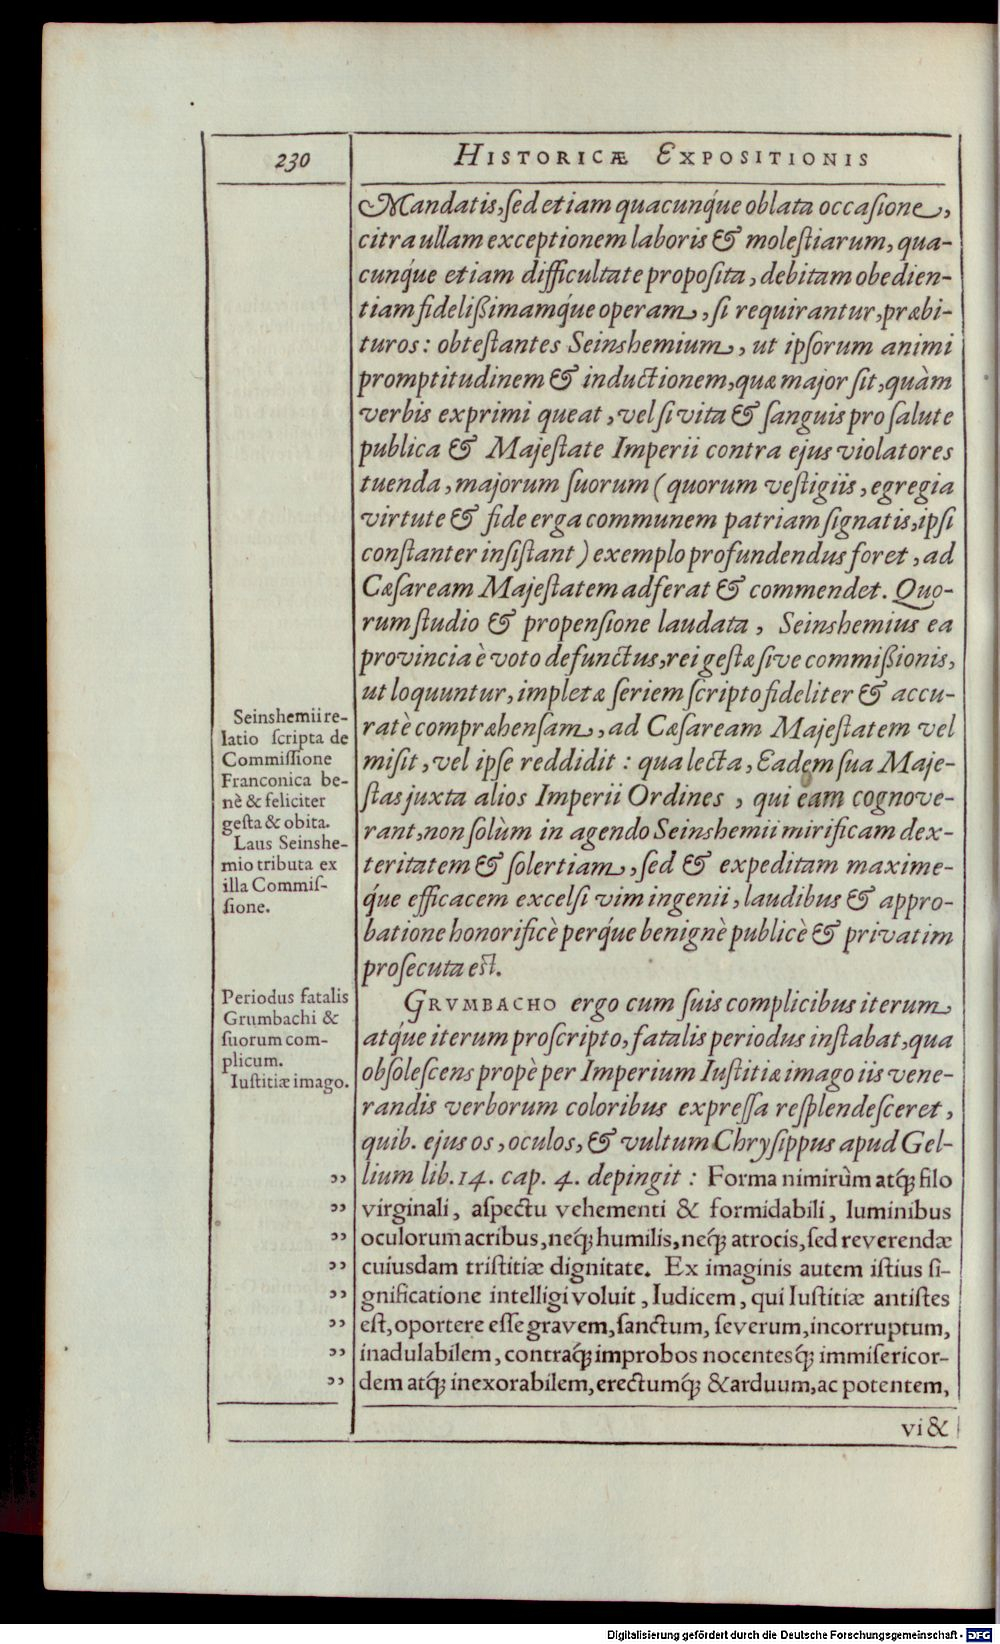 230
HISTORICÆ EXPOSITIONIS
Mandatis, sed etiam quacunq́ue oblata occasione,
citra ullam exceptionem laboris & molestiarum, qua-
cunq́ue etiam difficultate proposita, debitam obedien-
tiam fidelißimamq́ue operam, si requirantur, præbi-
turos: obtestantes Seinshemium, ut ipsorum animi
promptitudinem & inductionem, quæ major sit, quàm
verbis exprimi queat, vel si vita & sanguis pro salute
publica & Majestate Imperii contra ejus violatores
tuenda, majorum suorum (quorum vestigiis, egregia
virtute & fide erga communem patriam signatis, ipsi
constanter insistant) exemplo profundendus foret, ad
Cæsaream Majestatem adferat & commendet. Quo-
rum studio & propensione laudata, Seinshemius ea
provincia è voto defunctus, rei gestæ sive commißionis,
ut loquuntur, impletæ seriem scripto fideliter & accu-
ratè compræhensam, ad Cæsaream Majestatem vel
misit, vel ipse reddidit: qua lecta, Eadem sua Maje-
stas juxta alios Imperii Ordines, qui eam cognove-
rant, non solùm in agendo Seinshemii mirificam dex-
teritatem & solertiam, sed & expeditam maxime-
q́ue efficacem excelsi vim ingenii, laudibus & appro-
batione honorificè perq́ue benignè publicè & privatim
prosecuta est.
Seinshemii re-
latio scripta de
Commissione
Franconica be-
nè & feliciter
gesta & obita.
Laus Seinshe-
mio tributa ex
illa Commis-
sione.
GRVMBACHO ergo cum suis complicibus iterum
atq́ue iterum proscripto, fatalis periodus instabat, qua
obsolescens propè per Imperium Iustitiæ imago iis vene-
randis verborum coloribus expressa resplendesceret,
quib. ejus os, oculos, & vultum Chrysippus apud Gel-
lium lib. 14. cap. 4. depingit: Forma nimirùm atq́; filo
virginali, aspectu vehementi & formidabili, luminibus
oculorum acribus, neq́; humilis, neq́; atrocis, sed reverendæ
cuiusdam tristitiæ dignitate. Ex imaginis autem istius si-
gnificatione intelligi voluit, Iudicem, qui Iustitiæ antistes
est, oportere esse gravem, sanctum, severum, incorruptum,
inadulabilem, contraq́; improbos nocentesq́; immisericor-
dem atq́; inexorabilem, erectumq́; & arduum, ac potentem,
Periodus fatalis
Grumbachi &
suorum com-
plicum.
Iustitiæ imago.
„
„
„
„
„
„
„
„
vi &
Digitalisierung gefördert durch die Deutsche Forschungsgemeinschaft - DFG